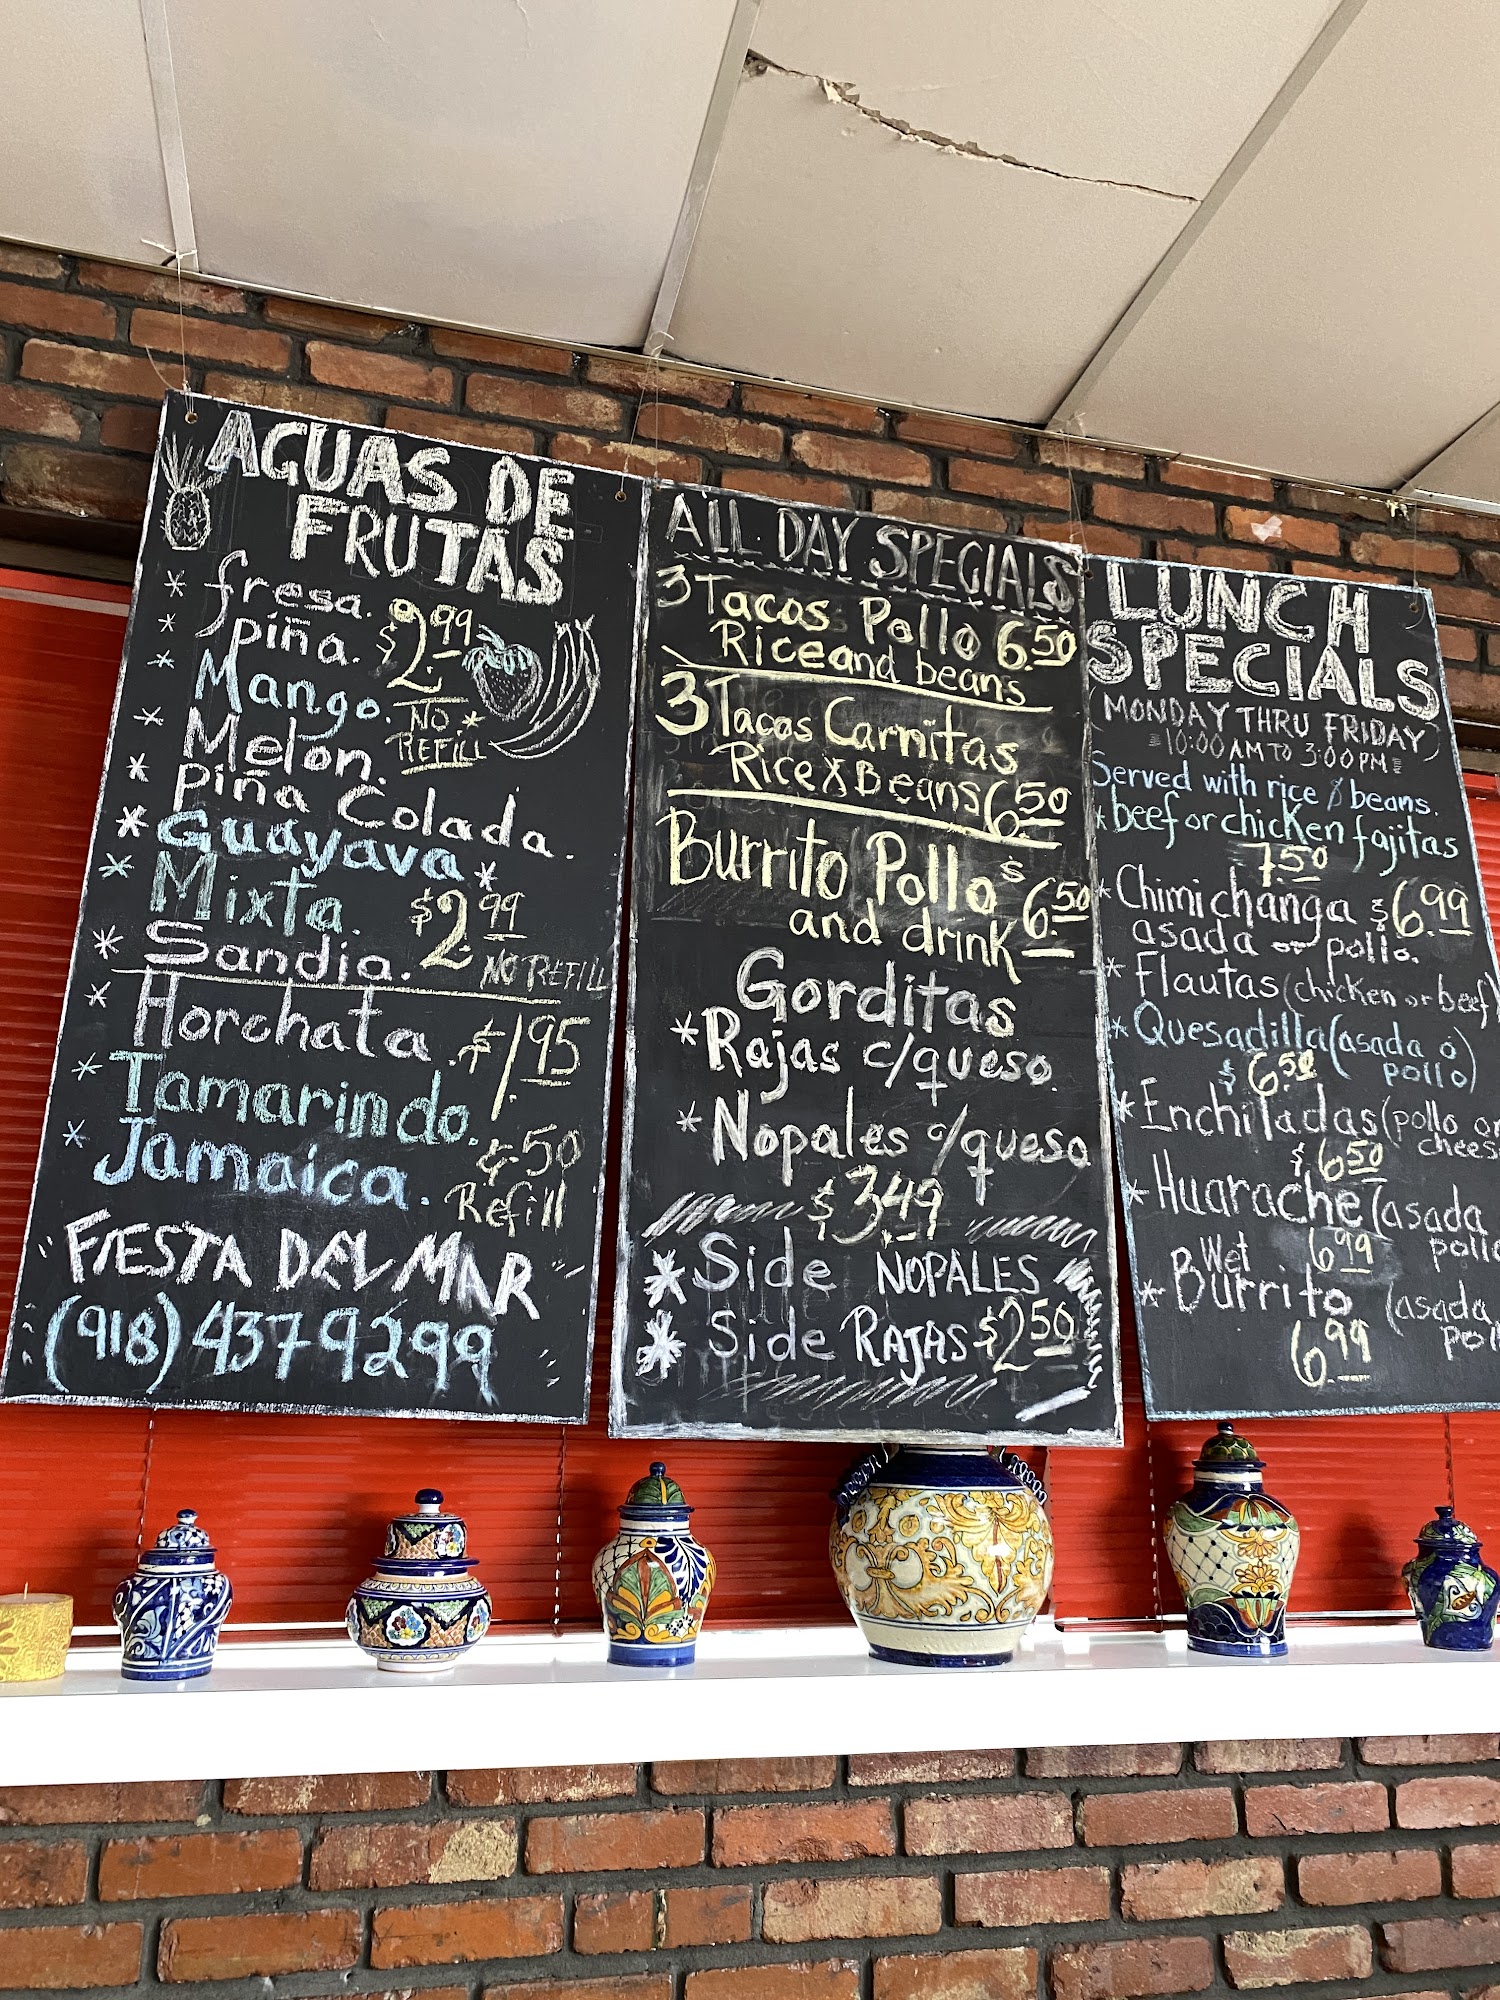 AGUAS DE
FRUTAS
* fresa.
* piña. $2.99
* Mango. NO *
REFILL
* Melon.
* Piña Colada.
* Guayava *
* Mixta. $2.99
* Sandia. NO REFILL
* Horchata $1.95
* Tamarindo.
* Jamaica. ¢50
Refill
FIESTA DEL MAR
(918) 437 9299
ALL DAY SPECIALS
3 Tacos Pollo 6.50
Rice and beans
3 Tacos Carnitas
Rice & Beans 6.50
Burrito Pollo $6.50
and drink
Gorditas
* Rajas c/queso
* Nopales c/queso
$3.49
* Side NOPALES
* Side RAJAS $2.50
LUNCH
SPECIALS
(MONDAY THRU FRIDAY)
10:00 AM TO 3:00 PM
Served with rice & beans.
* beef or chicken fajitas
7.50
* Chimichanga $6.99
asada or pollo.
* Flautas (chicken or beef)
* Quesadilla (asada ó
pollo)
$6.50
* Enchiladas (pollo or
cheese
$6.50
* Huarache (asada
pollo
6.99
* Wet
Burrito (asada
6.99